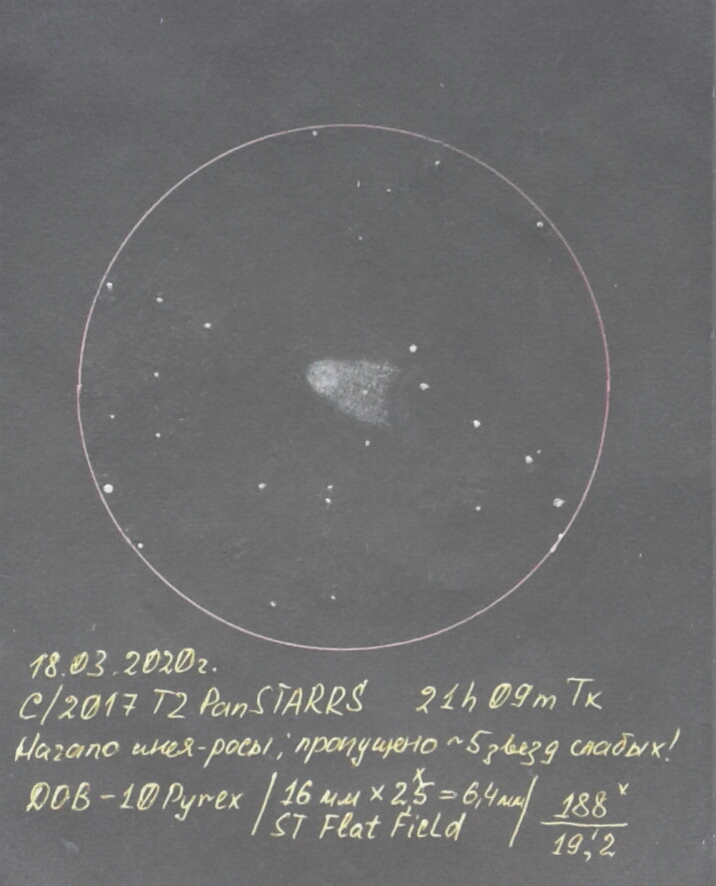 18.03.2020г.
C/2017 T2 PanSTARRS 21h 09m Тк
Начало инея-росы; пропущено ~5 звезд слабых!
DOB-10 Pyrex / 16 мм × 2,5ˣ = 6,4мм / 188ˣ
ST Flat Field 19,'2